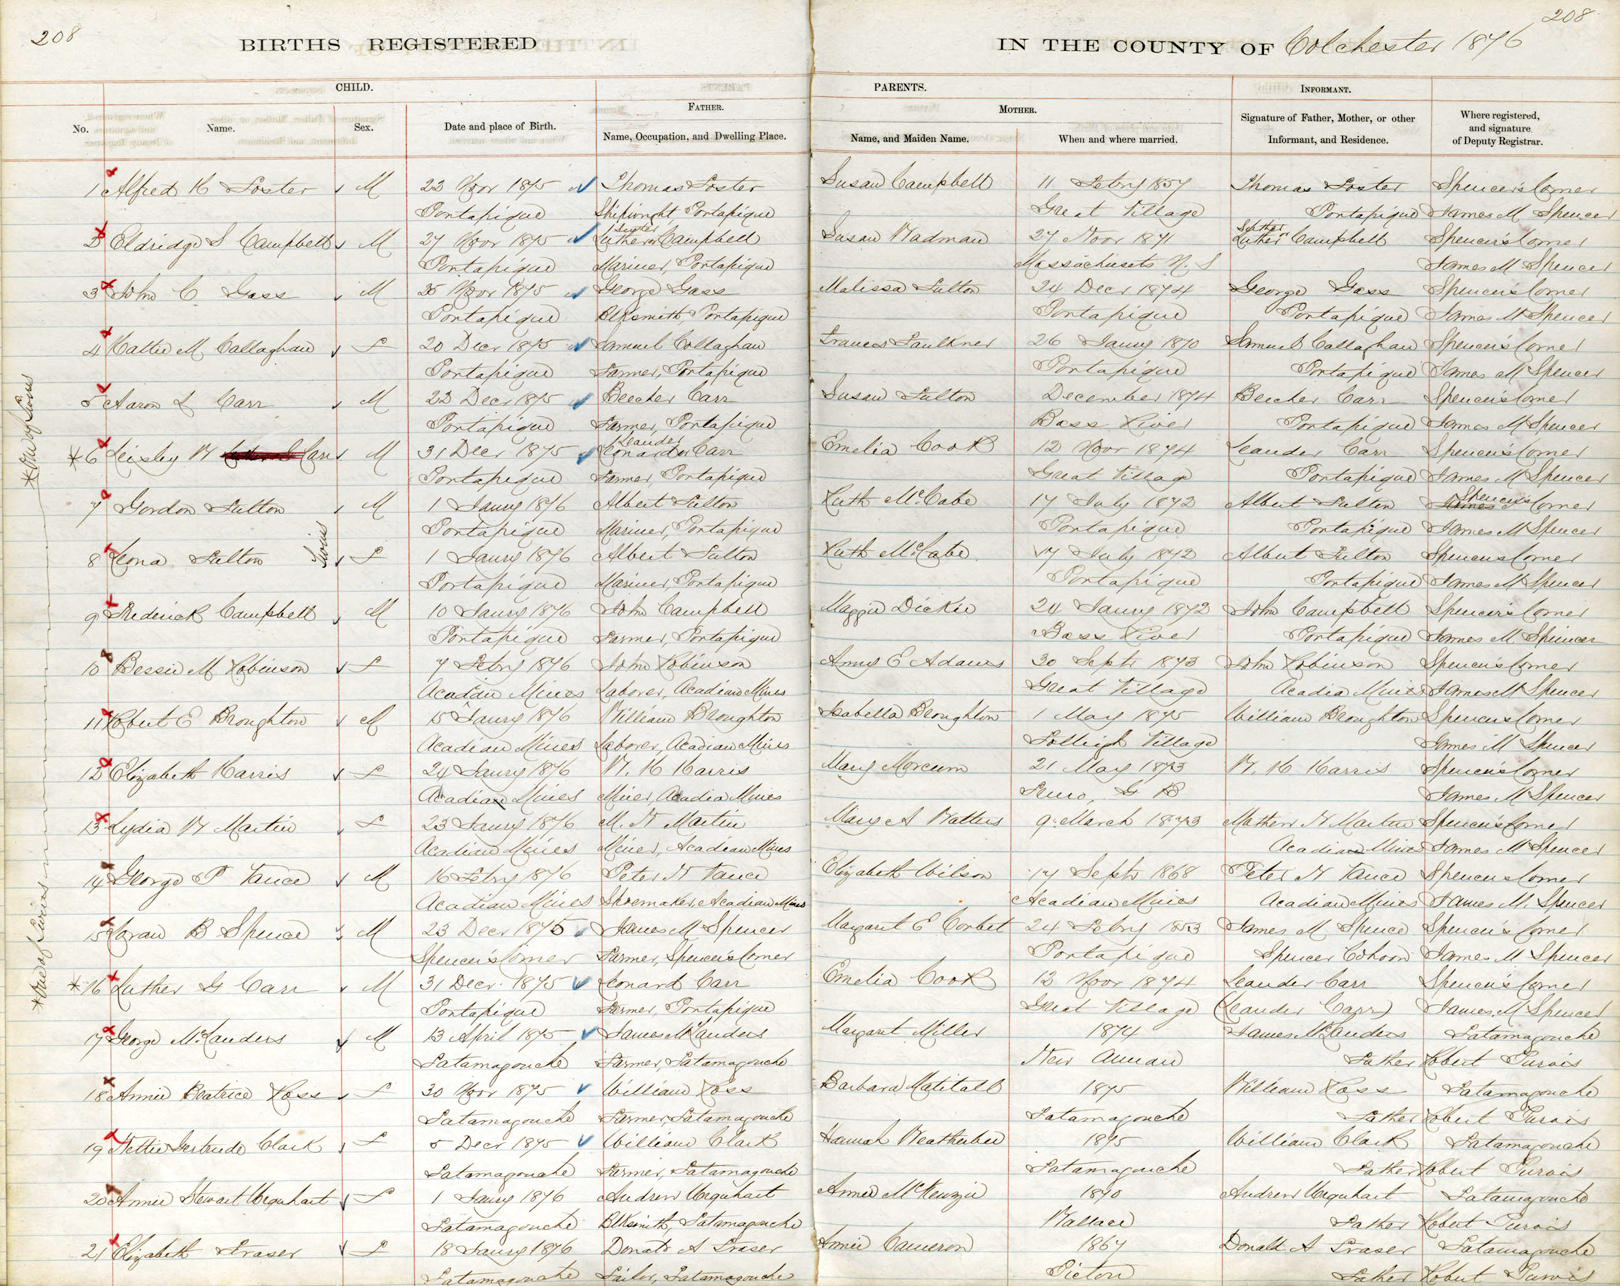 208
208
BIRTHS REGISTERED IN THE COUNTY OF Colchester 1876
CHILD. PARENTS. INFORMANT.
FATHER. MOTHER.
No. Name. Sex. Date and place of Birth. Name, Occupation, and Dwelling Place. Name, and Maiden Name. When and where married. Signature of Father, Mother, or other Informant, and Residence. Where registered, and signature of Deputy Registrar.
1 Alfred H Foster M 22 Novr 1875 Thomas Foster Susan Campbell 11 Febry 1857 Thomas Foster Spencer's Corner
Portapique Shipwright Portapique Great Village Portapique James M Spencer
2 Eldridge S Campbell M 27 Novr 1875 Luther Campbell Susan Wadman 27 Novr 1871 Luther Campbell Spencer's Corner
Portapique Mariner, Portapique Massachusets N S James M Spencer
3 John C Gass M 25 Novr 1875 George Gass Malissa Fulton 24 Decr 1874 George Gass Spencer's Corner
Portapique Blksmith, Portapique Portapique Portapique James M Spencer
4 Hattie M Callaghan F 20 Decr 1875 Samuel Callaghan Frances Faulkner 26 Janry 1870 Samuel Callaghan Spencer's Corner
Portapique Farmer, Portapique Portapique Portapique James M Spencer
5 Aaron L Carr M 22 Decr 1875 Beecher Carr Susan Fulton December 1874 Beecher Carr Spencer's Corner
Portapique Farmer, Portapique Bass River Portapique James M Spencer
* 6 Leixley W Carr M 31 Decr 1875 Leonard Leander Carr Emelia Cook 12 Novr 1874 Leander Carr Spencer's Corner
Portapique Farmer, Portapique Great Village Portapique James M Spencer
7 Gordon Fulton M 1 Janry 1876 Albert Fulton Ruth McCabe 17 July 1872 Albert Fulton Spencer's Corner
Portapique Mariner, Portapique Portapique Portapique James M Spencer
Twins
8 Leona Fulton F 1 Janry 1876 Albert Fulton Ruth McCabe 17 July 1872 Albert Fulton Spencer's Corner
Portapique Mariner, Portapique Portapique Portapique James M Spencer
9 Frederick Campbell M 10 Janry 1876 John Campbell Maggie Dickie 24 Janry 1872 John Campbell Spencer's Corner
Portapique Farmer, Portapique Bass River Portapique James M Spencer
10 Bessie M Robinson F 7 Febry 1876 John Robinson Amy E Adams 30 Septr 1873 John Robinson Spencer's Corner
Acadian Mines Laborer, Acadian Mines Great Village Acadia Mines James M Spencer
11 Robert E Broughton M 15 Janry 1876 William Broughton Isabella Broughton 1 May 1875 William Broughton Spencer's Corner
Acadian Mines Laborer, Acadian Mines Folleigh Village James M Spencer
12 Elizabeth Harris F 24 Janry 1876 W. H Harris Mary Morcum 21 May 1873 W. H Harris Spencer's Corner
Acadian Mines Miner, Acadia Mines Truro, G B James M Spencer
13 Lydia W Martin F 23 Janry 1876 M. N Martin Mary A Watters 9 March 1873 Mathew N Martin Spencer's Corner
Acadian Mines Miner, Acadian Mines Acadian Mines James M Spencer
14 George P Vance M 16 Febry 1876 Peter N Vance Elizabeth Wilson 17 Septr 1868 Peter N Vance Spencer's Corner
Acadian Mines Shoemaker, Acadian Mines Acadian Mines Acadian Mines James M. Spencer
15 B Spence M 23 Decr 1875 James M Spencer Margaret E Corbet 24 Febry 1853 James M Spence Spencer's Corner
Spencer's Corner Farmer, Spencer's Corner Portapique Spencer James M Spencer
* 16 Luther G Carr M 31 Decr. 1875 Leonard Carr Emelia Cook 12 Novr 1874 Leander Carr Spencer's Corner
Portapique Farmer, Portapique Great Village (Leander Carr) James M Spencer
17 George McLanders M 13 April 1875 James McLanders Margaret Miller 1874 James McLanders Tatamagouche
Tatamagouche Farmer, Tatamagouche New Annan Father Robert Purvis
18 Annie Beatrice Ross F 30 Novr 1875 William Ross Barbara Matitall 1875 William Ross Tatamagouche
Tatamagouche Farmer, Tatamagouche Tatamagouche Father Robert Purvis
19 Nettie Gertrude Clark F 5 Decr 1875 William Clark Hannah Weatherbee 1875 William Clark Tatamagouche
Tatamagouche Farmer, Tatamagouche Tatamagouche Father Robert Purvis
20 Annie Stewart Urquhart F 1 Janry 1876 Andrew Urquhart Annie McKenzie 1870 Andrew Urquhart Tatamagouche
Tatamagouche Blksmith, Tatamagouche Wallace Father Robert Purvis
21 Elizabeth Fraser F 18 Janry 1876 Donald A Fraser Annie Cameron 1867 Donald A Fraser Tatamagouche
Tatamagouche Tailor, Tatamagouche Pictou Father Robert Purvis
* One of Twins
* One of Twins